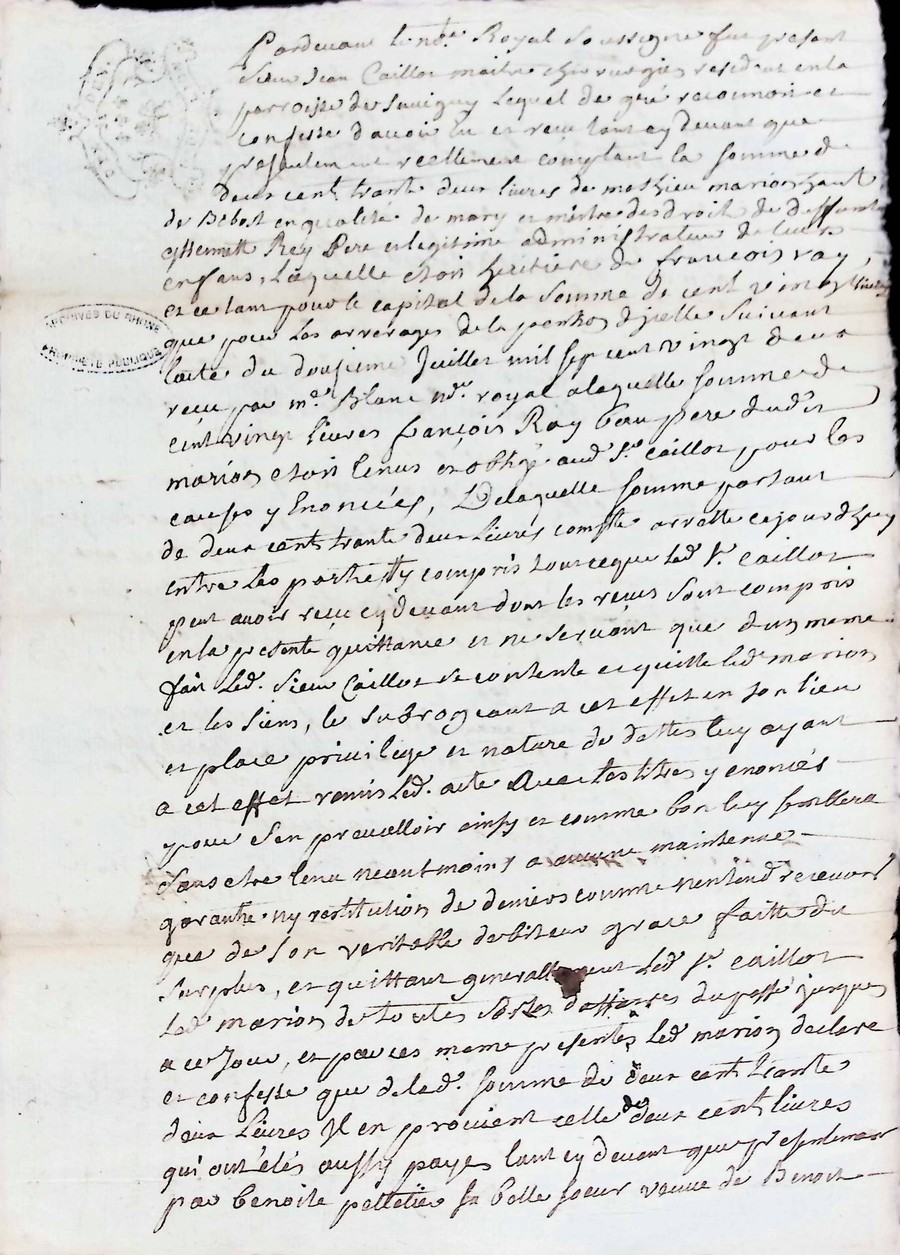 Pardevant le no.re Royal Soussigné fut present
Sieur Jean Caillot maitre chirurgien resident en la
parroisse de Savigny Lequel de gré reconnoit et
confesse d'avoir eu et recu tant cy devant que
presentement reellement comptant la somme de
deux cent trante deux livres de mathieu marion
de Bibost en qualité de mary et maitre des droit de deffunte
Rey Pere et legitime administrateur de leurs
enfans, Laquelle etoit heritiere de françois ray,
et ce tant pour le capital de la somme de cent vingt livres
que pour les arrerages de la pention d'jcelle suivant
lacte du dousieme Juillet mil sept cent vingt deux
recu par m.e Blanc no.re royal a laquelle somme de
cent vingt livres françois Ray beau pere dudit
marion etoit tenus et obligé aud. Sr. caillot pour les
causes y Enoncées, De laquelle somme partant
de deux cent trante deux Livres compte arretté cejourd'huy
entre les parties y compris tout ce que led. Sr. Caillot
peut avoir recu cy devant dont les reçus sont compris
en la presente quittance et ne servant que d'un meme
fait Led. Sieur Caillot se contente et quitte led. marion
et les siens, le subrogeant a cet effet en son lieu
et place privilege et nature de dettes luy ayant
a cet effet remis led. acte avec les titres y enoncés
pour s'en prevalloir ainsy et comme bon luy semblera
sans etre tenu neantmoins a aucune maintenue
garantie ny restitution de deniers comme n'entend recevoir
que de son veritable debiteur grace faitte du
surplus, et quittant generallement Led. Sr. caillot
Led. marion de toutes sortes d'affaires du passé jusques
a ce Jour, et par ces meme presentes Led. marion declare
et confesse que de lad. somme de deux cent trante
deux Livres Il en provient celle de deux cent livres
qui ont étés aussy payés tant cy devant que presentement
par benoite pelletier sa belle soeur veuve de Benoit
ARCHIVES DU RHONE
PROPRIETE PUBLIQUE